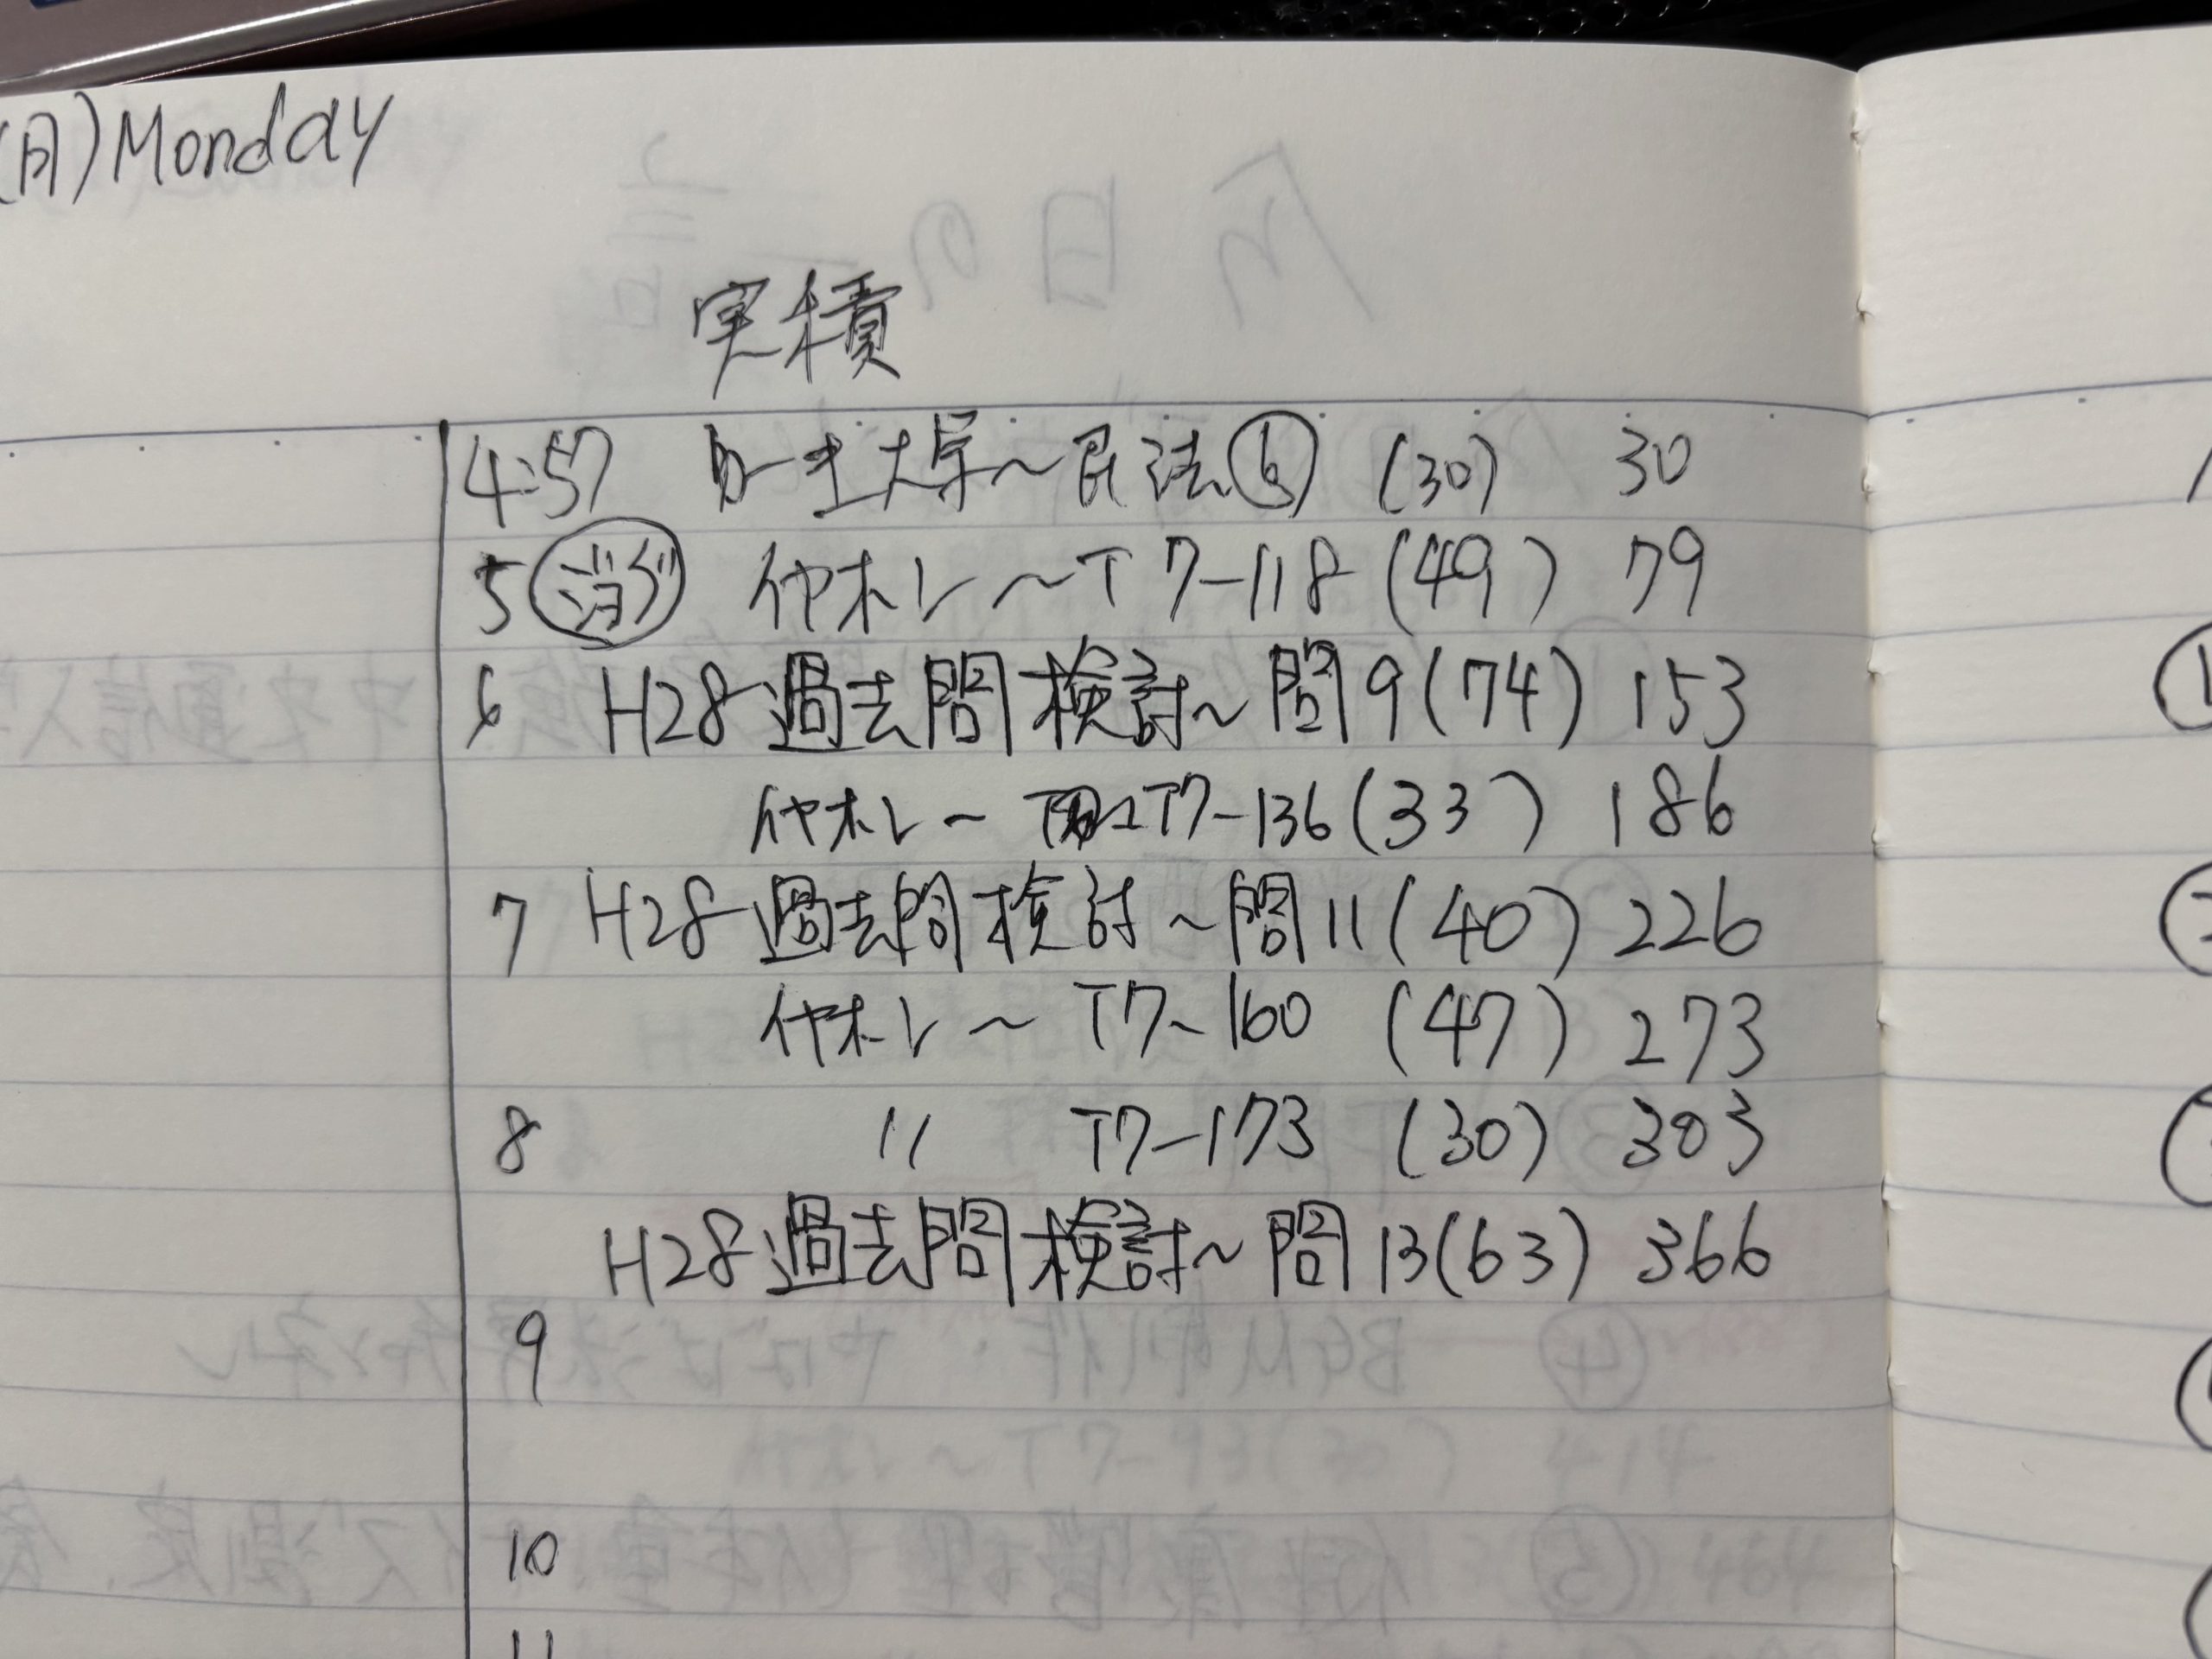 (月) Monday
実積
4:57 カー士大学～民法⑥ (30) 30
5 イヤホレ～T7-118 (49) 79
6 H28過去問検討～問9(74) 153
イヤホレ～ T7-136(33) 186
7 H28過去問検討～問11(40) 226
イヤホレ～ T7-160 (47) 273
8 〃 T7-173 (30) 303
H28過去問検討～問13(63) 366
9
10
11